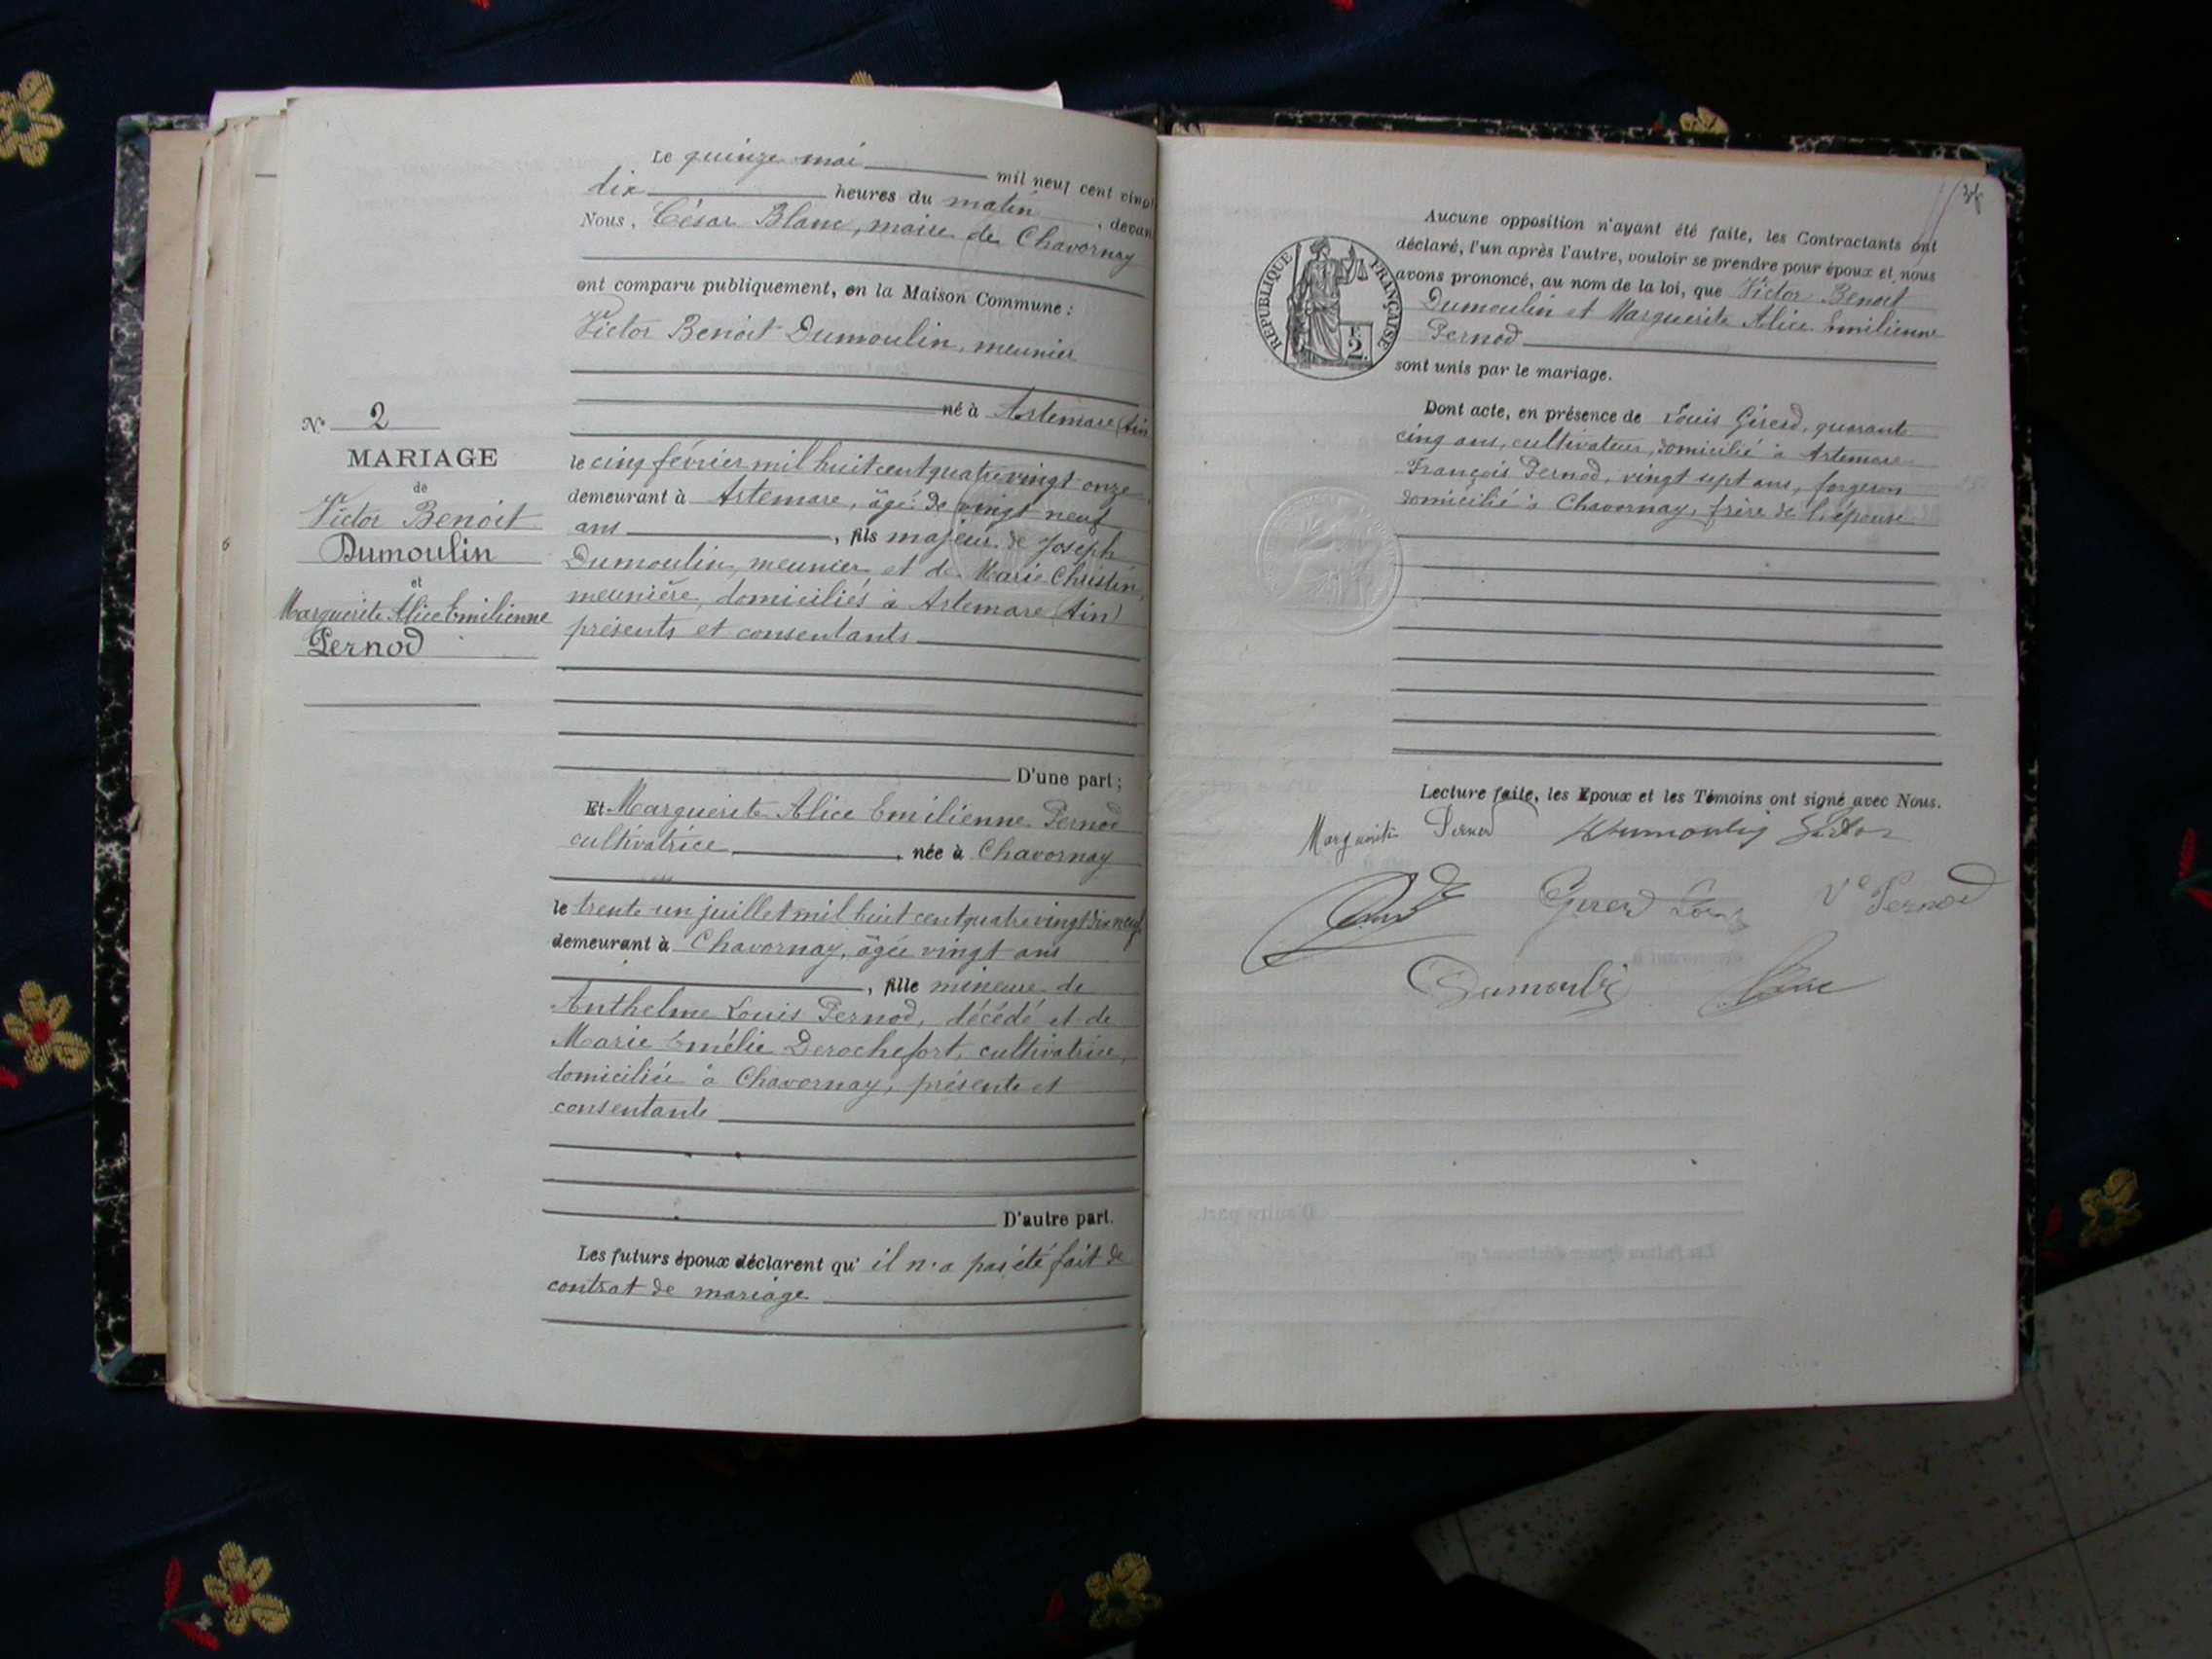 Le quinze mai mil neuf cent vingt
dix heures du matin, devan
Nous, César Blanc, maire de Chavornay
ont comparu publiquement, en la Maison Commune :
Victor Benoit Dumoulin, meunier
né à Artemare (Ain
le cinq février mil huit cent quatre vingt onze
demeurant à Artemare, âgé de vingt neuf
ans, fils majeur de Joseph
Dumoulin, meunier et de Marie Christin,
meunière, domiciliés à Artemare (Ain)
présents et consentants
D'une part;
Et Marguerite Alice Emilienne Pernod
cultivatrice, née à Chavornay
le trente un juillet mil huit cent quatre vingt dix neuf
demeurant à Chavornay, âgée vingt ans
, fille mineure de
Anthelme Louis Pernod, décédé et de
Marie Emélie Derochefort, cultivatrice,
domiciliée à Chavornay, présente et
consentante
D'autre part.
Les futurs époux déclarent qu'il n'a pas été fait de
contrat de mariage
N° 2
MARIAGE
de
Victor Benoit
Dumoulin
et
Marguerite Alice Emilienne
Pernod
Aucune opposition n'ayant été faite, les Contractants ont
déclaré, l'un après l'autre, vouloir se prendre pour époux et nous
avons prononcé, au nom de la loi, que Victor Benoit
Dumoulin et Marguerite Alice Emilienne
Pernod
sont unis par le mariage.
RÉPUBLIQUE FRANÇAISE
F.
2.
Dont acte, en présence de Louis Girerd, quarante
cinq ans, cultivateur, domicilié à Artemare
François Pernod, vingt sept ans, forgeron
domicilié à Chavornay, frère de l'épouse
Lecture faite, les Epoux et les Témoins ont signé avec Nous.
Marguerite Pernod Dumoulin Victor
Girerd Louis Ve Pernod
Dumoulin Blanc